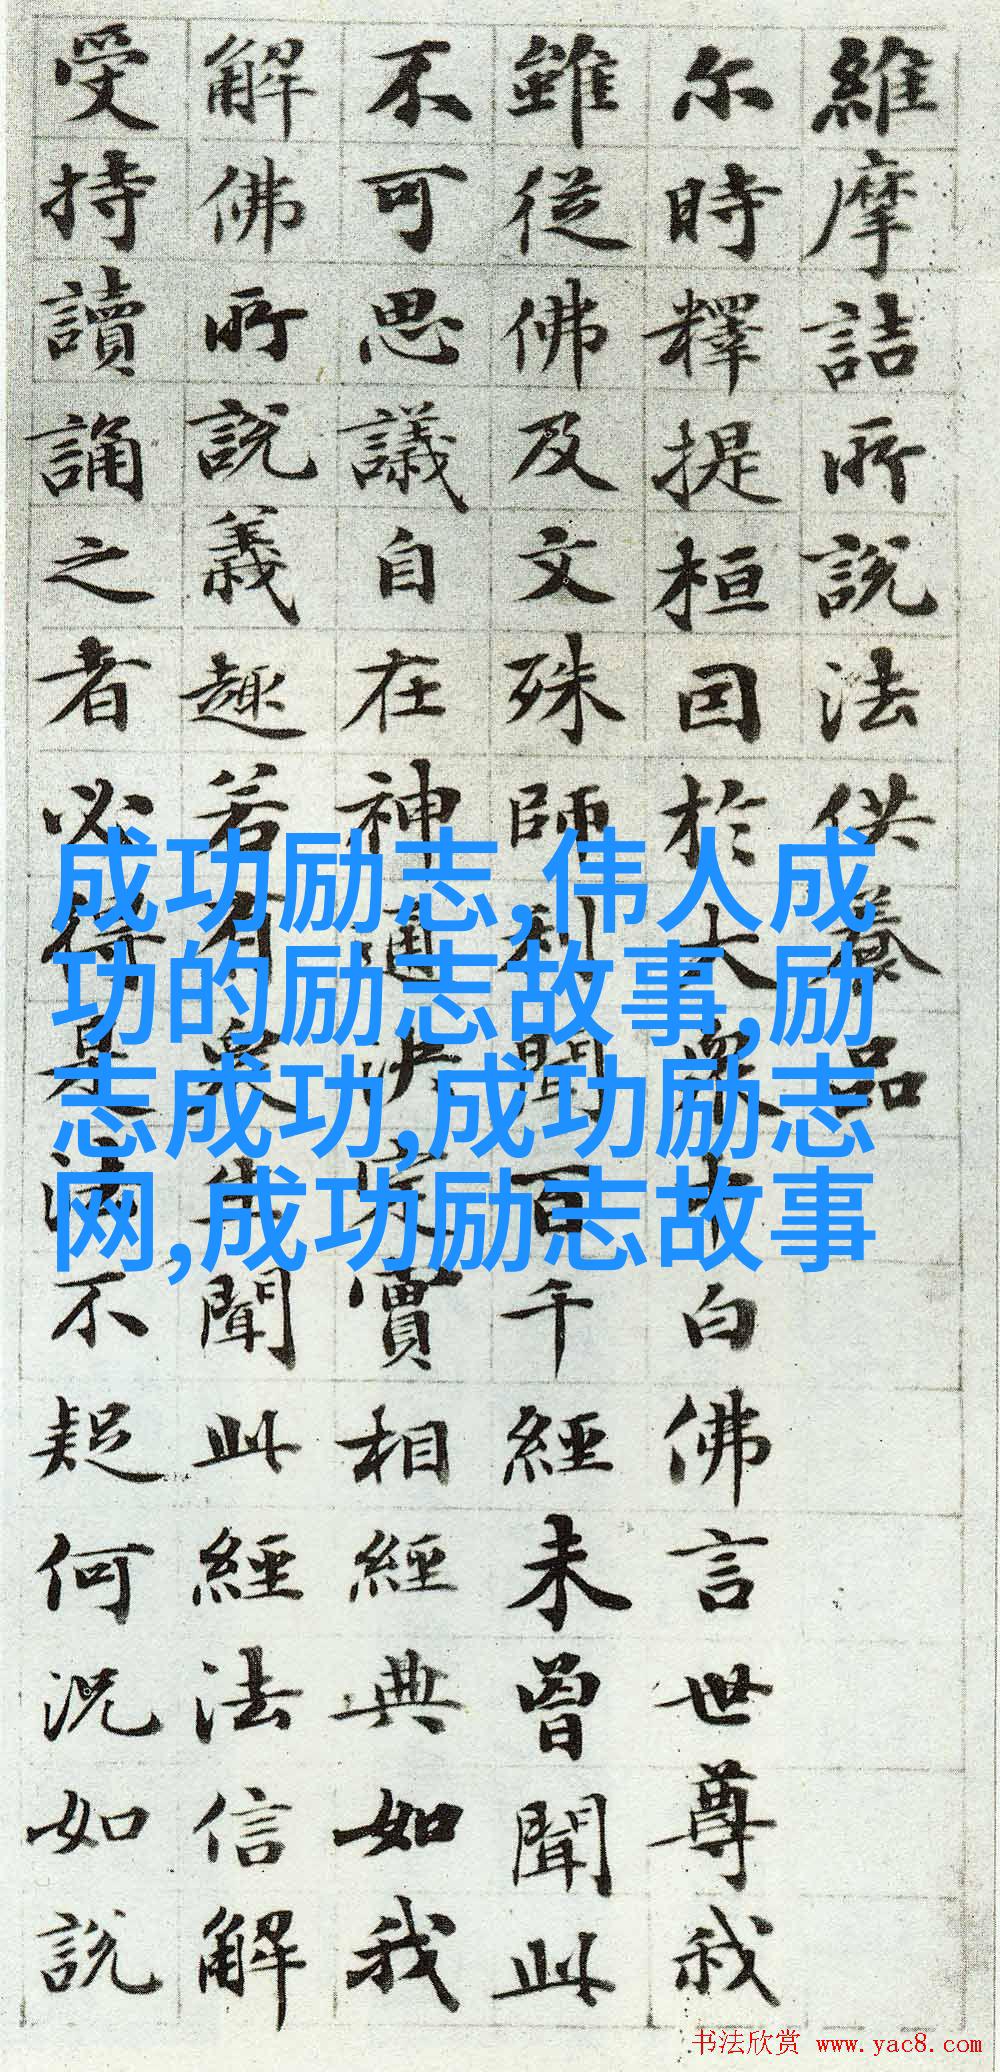 維摩詰所說法供養品
尔時釋提桓因於大衆中白佛言世尊我
雖從佛及文殊師利聞百千經未曾聞此
不可思議自在神通決定實相經典如我
解佛所說義趣若有衆生聞此經法信解
受持讀誦之者必得是法不疑何況如說
成功励志,伟人成
功的励志故事,励
志成功,成功励志
网,成功励志故事
书法欣赏 www.yac8.com